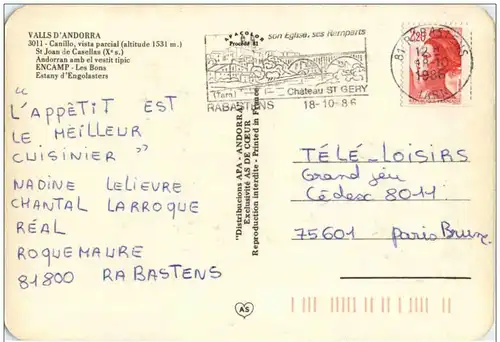 VALLS D'ANDORRA
3011 - Canillo, vista parcial (altitude 1531 m.)
St Joan de Casellas (Xe s.)
Andorran amb el vestit típic
ENCAMP - Les Bons
Estany d'Engolasters
"
L'APPÊTIT EST
LE MEILLEUR
CUISINIER "
NADINE LELIEVRE
CHANTAL LARROQUE
RÉAL
ROQUEMAURE
81800 RABASTENS
APACOLOR
Procédé 82
"Distribucions APA - ANDORRA"
Exclusivité AS DE CŒUR
Reproduction interdite - Printed in France
AS
son Eglise, ses Remparts
(Tarn) Château ST GERY
RABASTENS 18-10-86
2,20
81 RABASTENS
18-10
1986
TARN
TÉLÉ-LOISIRS
Grand jeu
Cédex 8011
75601 Paris Brune